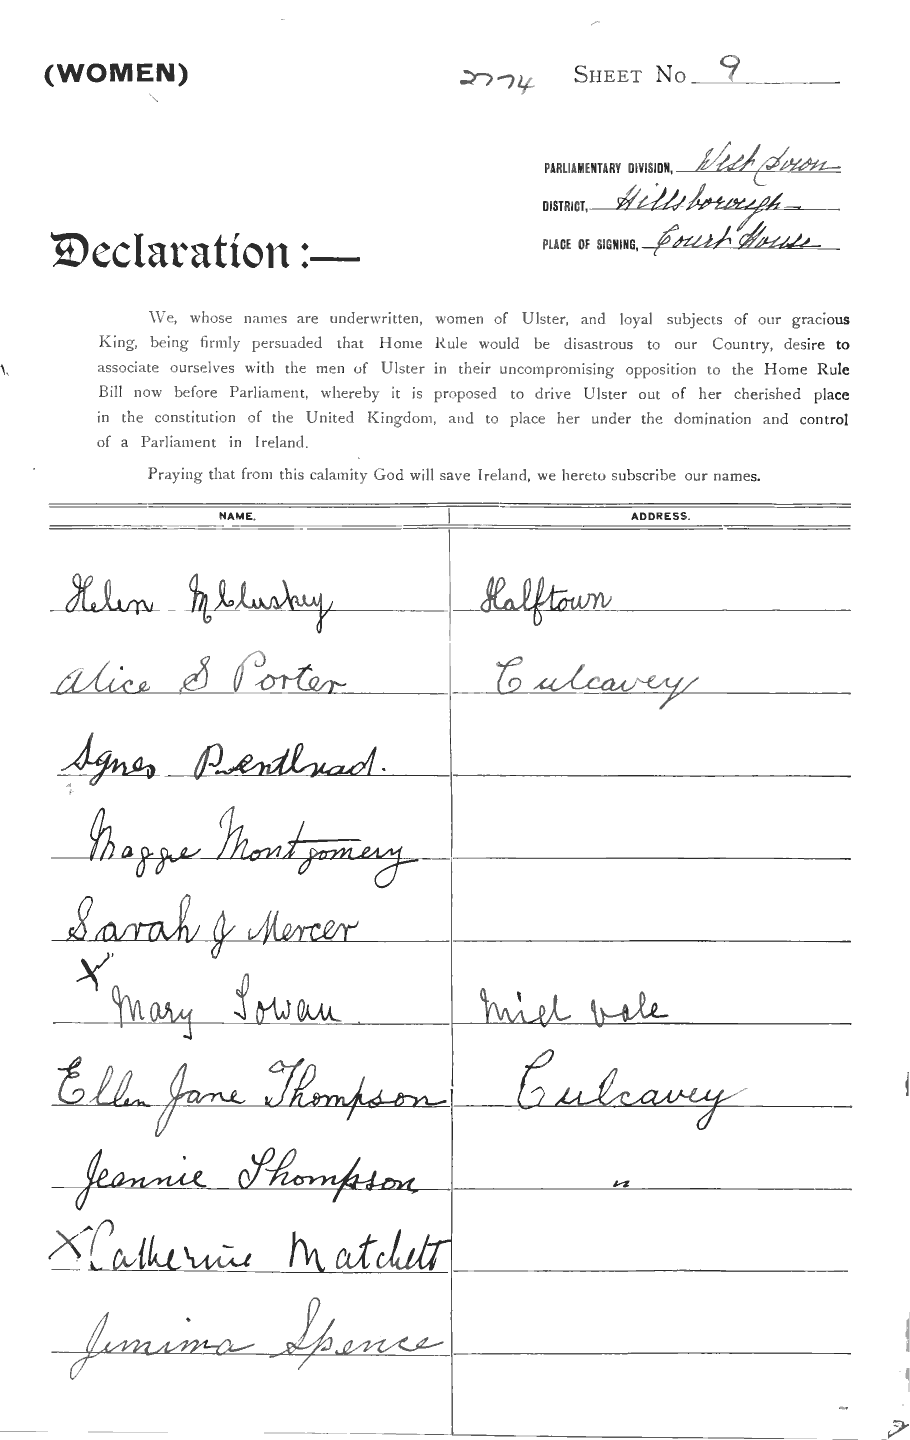 (WOMEN)
2774 SHEET No 9
PARLIAMENTARY DIVISION, West Down
DISTRICT, Hillsborough
PLACE OF SIGNING, Court House
Declaration :—
We, whose names are underwritten, women of Ulster, and loyal subjects of our gracious
King, being firmly persuaded that Home Rule would be disastrous to our Country, desire to
associate ourselves with the men of Ulster in their uncompromising opposition to the Home Rule
Bill now before Parliament, whereby it is proposed to drive Ulster out of her cherished place
in the constitution of the United Kingdom, and to place her under the domination and control
of a Parliament in Ireland.
Praying that from this calamity God will save Ireland, we hereto subscribe our names.
NAME. ADDRESS.
Helen McCluskey Halftown
Alice S Porter Culcavey
Agnes
Maggie Montgomery
Sarah J Mercer
X
Mary vale
Ellen Jane Thompson Culcavey
Jeannie Thompson "
X Catherine Matchett
Jemima Spence